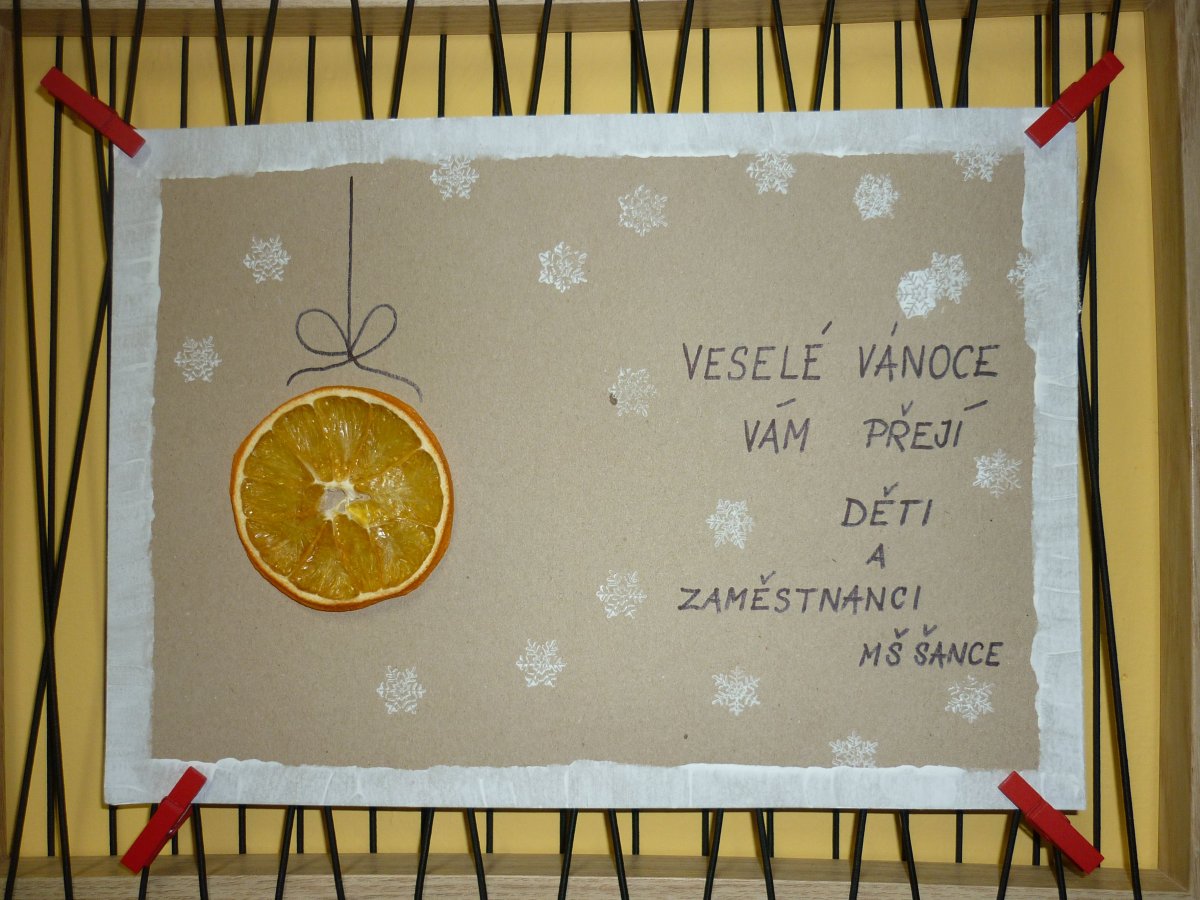 VESELÉ VÁNOCE
VÁM PŘEJÍ
DĚTI
A
ZAMĚSTNANCI
MŠ ŠANCE